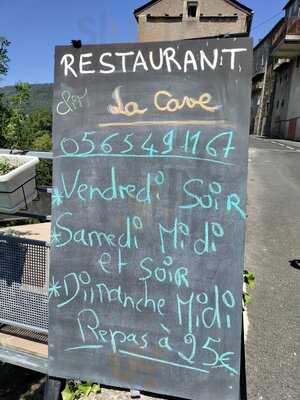 RESTAURANT
La Cave
0565491167
* Vendredi SOIR
* Samedi Midi
et SOIR
* Dimanche Midi
Repas à 25€